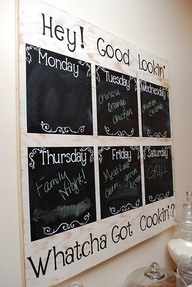 Hey! Good Lookin'
Monday
Tuesday
Chinese
Orange
Chicken
Wednesday
Thursday
Family
Night!
Friday
Meat Loaf
Corn, green
Saturday
GRILL
Whatcha Got Cookin'?